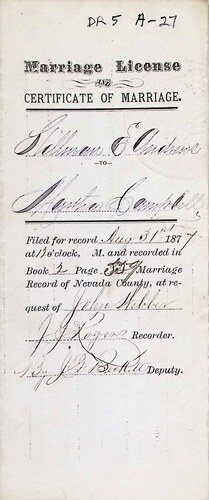 DR5 A-27
Marriage License
AND
CERTIFICATE OF MARRIAGE.
Stillman E Andrews
TO
Campbell
Filed for record Aug 31st 1877
at o'clock, M. and recorded in
Book 2 Page 559 Marriage
Record of Nevada County, at re-
quest of John Webber
J J Rogers Recorder.
By Deputy.